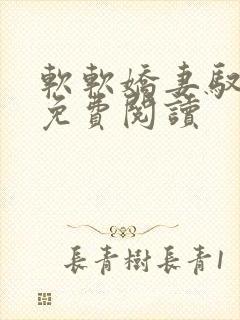 軟軟嬌妻馭
免費閱讀
長青樹長青1